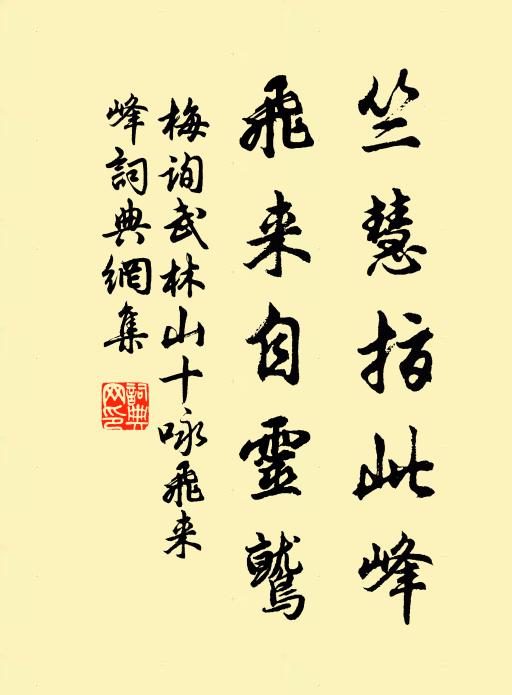 竺慧指此峰
飛来自靈鷲
梅询武林山十咏飛来
峰詞典網集
詞典
网印